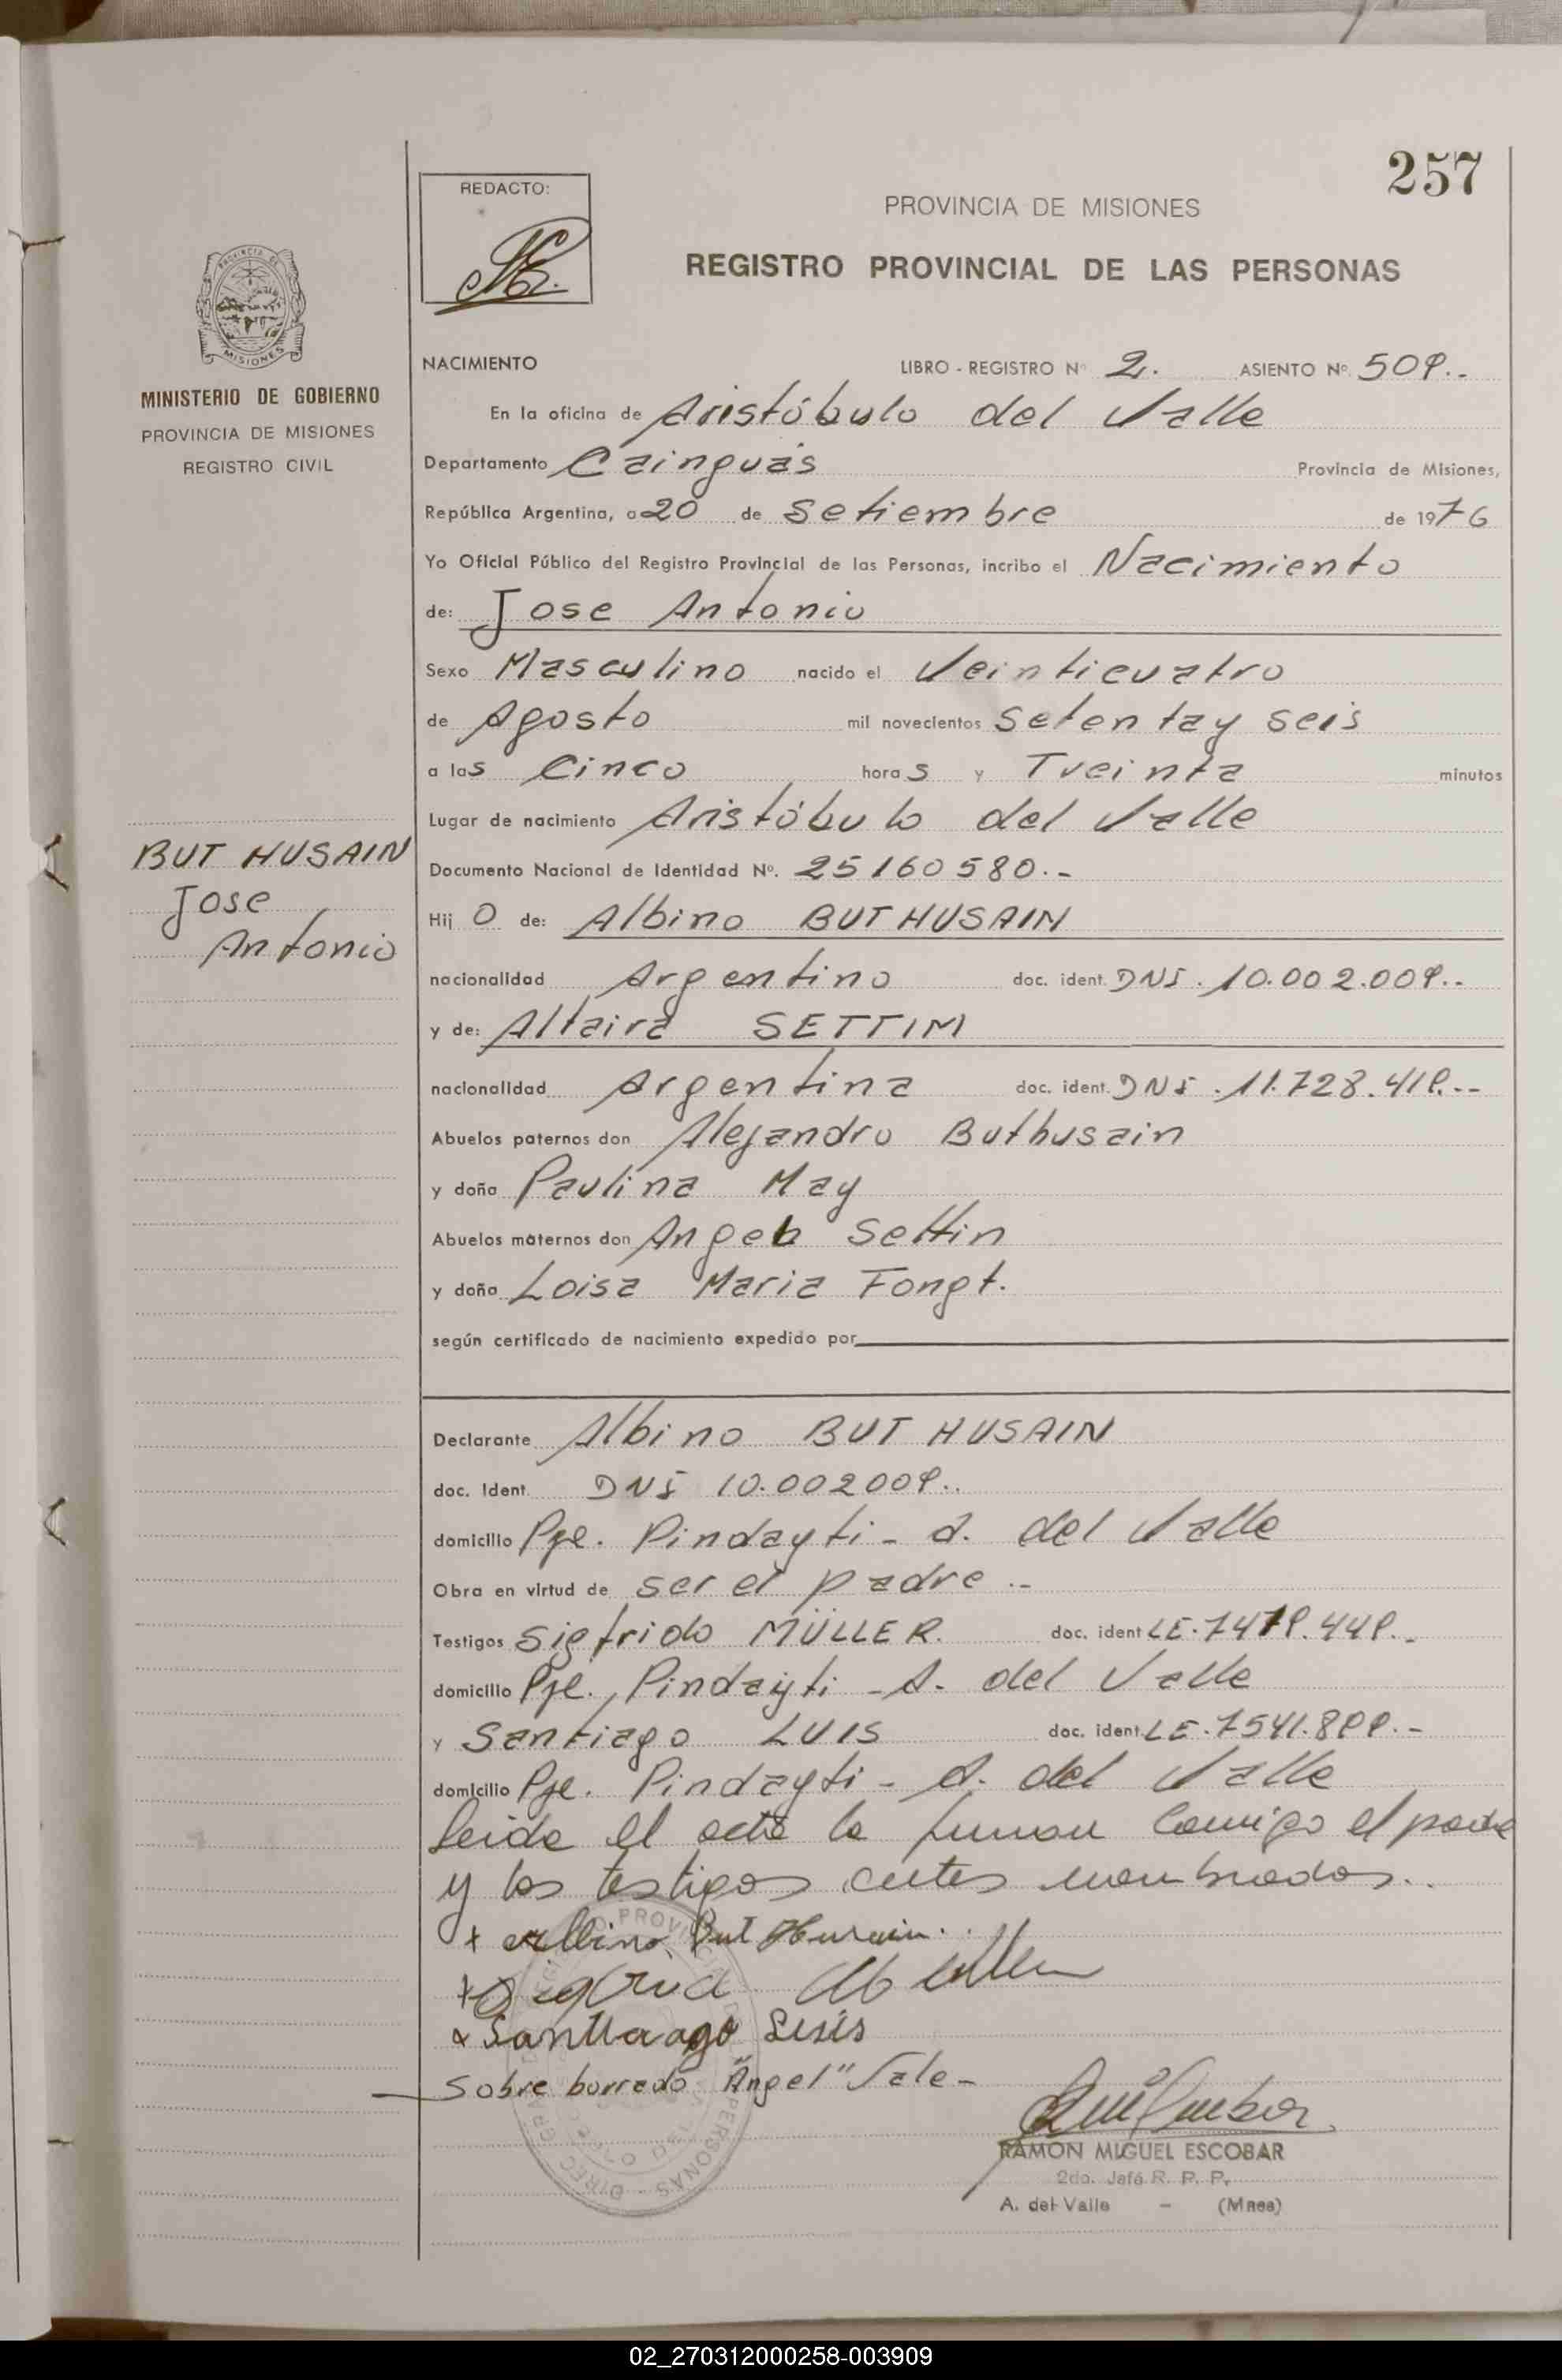 257
REDACTO:
PROVINCIA DE MISIONES
REGISTRO PROVINCIAL DE LAS PERSONAS
MISIONES
MINISTERIO DE GOBIERNO
PROVINCIA DE MISIONES
REGISTRO CIVIL
NACIMIENTO LIBRO - REGISTRO Nº 2. ASIENTO Nº 509.-
En la oficina de Aristóbulo del Valle
Departamento Cainguás Provincia de Misiones,
República Argentina, a 20 de Setiembre de 1976
Yo Oficial Público del Registro Provincial de las Personas, incribo el Nacimiento
de: Jose Antonio
Sexo Masculino nacido el Veinticuatro
de Agosto mil novecientos Setenta y seis
a las Cinco horas y Treinta minutos
Lugar de nacimiento Aristóbulo del Valle
BUT HUSAIN
Jose
Antonio
Documento Nacional de Identidad Nº. 25160580.-
Hijo de: Albino BUT HUSAIN
nacionalidad Argentino doc. ident. DNI. 10.002.009..
y de: Altaira SETTIM
nacionalidad Argentina doc. ident. DNI. 11.728.419.--
Abuelos paternos don Alejandro Buthusain
y doña Paulina May
Abuelos maternos don Angel Settin
y doña Loisa Maria Fongt.
según certificado de nacimiento expedido por
Declarante Albino BUT HUSAIN
doc. Ident. DNI 10.002009..
domicilio Pje. Pindayti - A. del Valle
Obra en virtud de ser el padre..
Testigos Sigfrido MÜLLER. doc. ident LE. 7479.449..
domicilio Pje. Pindayti - A. del Valle
y Santiago LUIS doc. ident. LE. 7541.899.-
domicilio Pje. Pindayti - A. del Valle
Leida el acta la firman conmigo el padre
y los testigos antes nombrados..
+ Albino But Husain..
x Santiaago Luis
Sobre borrado "Angel" Vale-
RAMON MIGUEL ESCOBAR
2do. Jefe R. P. P.
A. del Valle - (Mnes)
02_270312000258-003909